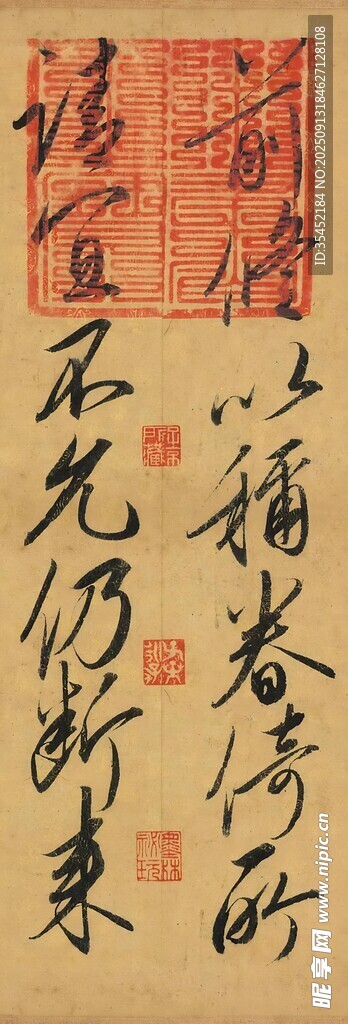 前修以稱眷倚所
請宜不允仍斷來
墨林秘玩
ID:35452184 NO:20250913184627128108
昵享网 www.nipic.cn